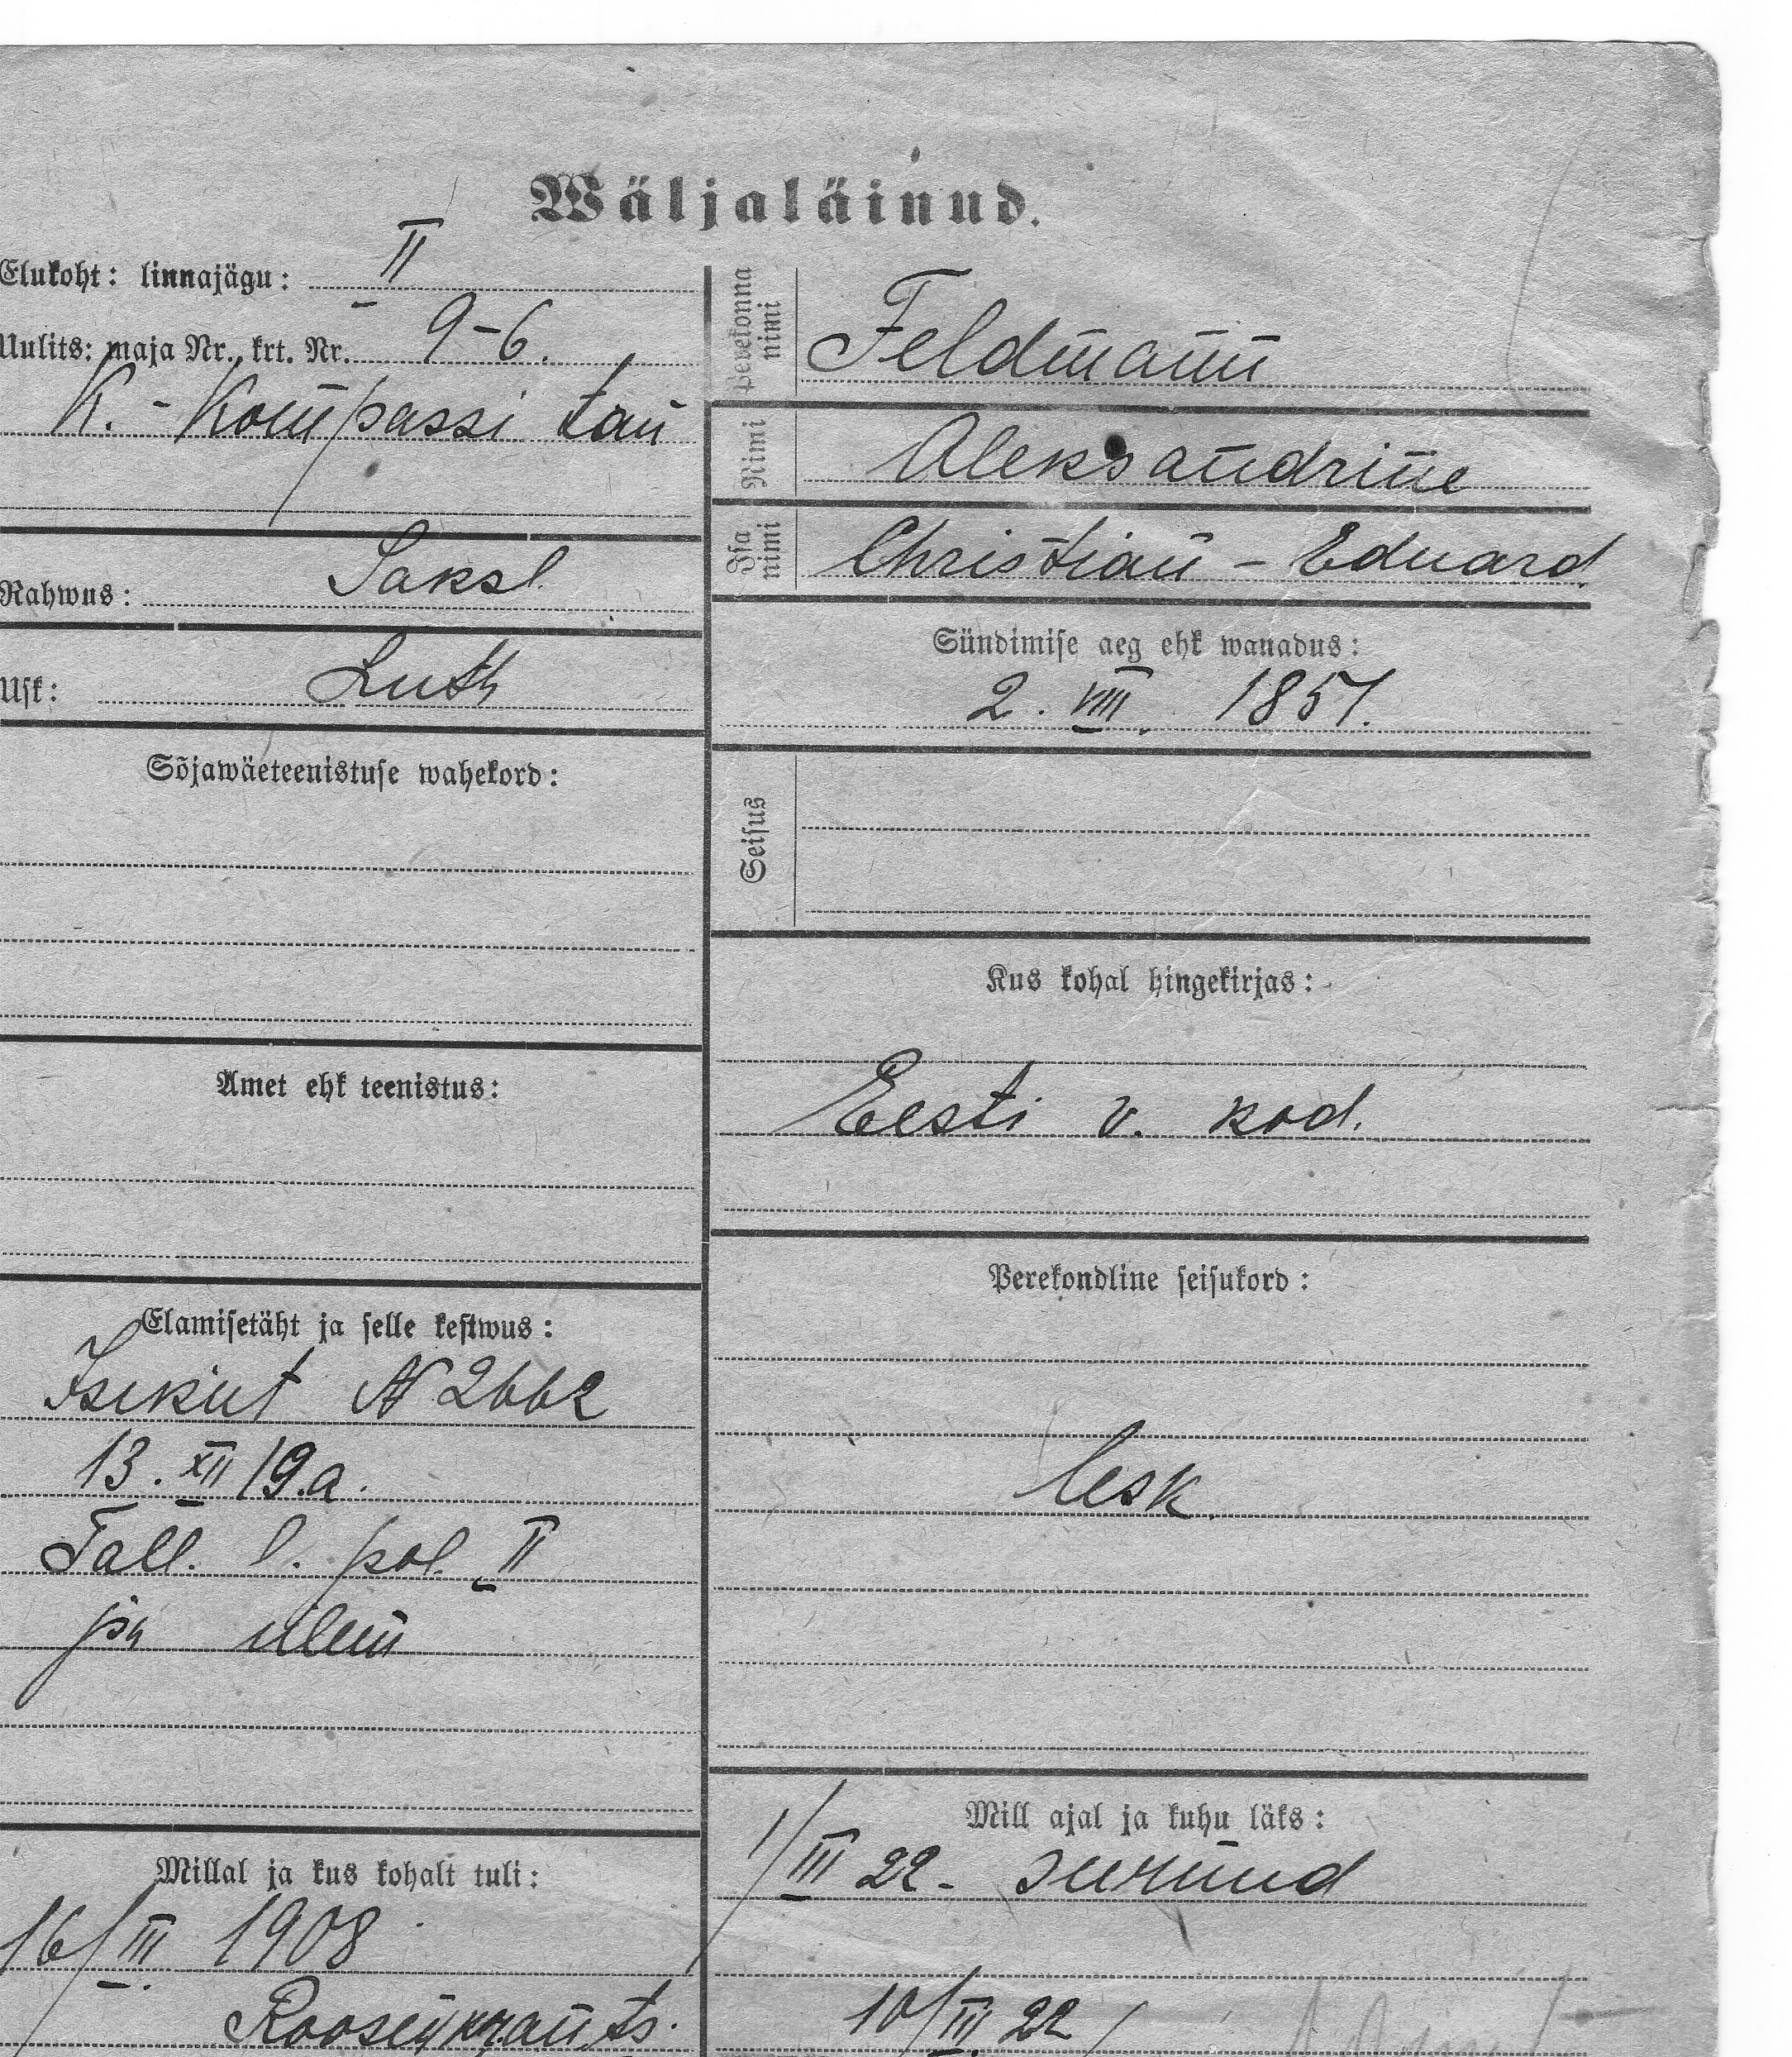 Wäljaläinud.
Elukoht: linnajägu: II
Uulits: maja Nr., krt. Nr. 9-6.
K.-Kompassi tän
Rahwus: Saksl.
Usk: Luth
Sõjawäeteenistuse wahekord:
Amet ehk teenistus:
Elamisetäht ja selle kestwus:
Isikut № 2662
13. XII 19.a.
Tall. l. pol. II
jsk ülem
Millal ja kus kohalt tuli:
16/III 1908
Roosenkrants.
Perekonna nimi
Feldmann
Nimi
Aleksandrine
Isa nimi
Christian - Eduard
Sündimise aeg ehk wanadus:
2. VIII. 1851.
Seisus
Kus kohal hingekirjas:
Eesti v. kod.
Perekondline seisukord:
lesk.
Mill ajal ja kuhu läks:
1/III 22 - surnud
10/III 22